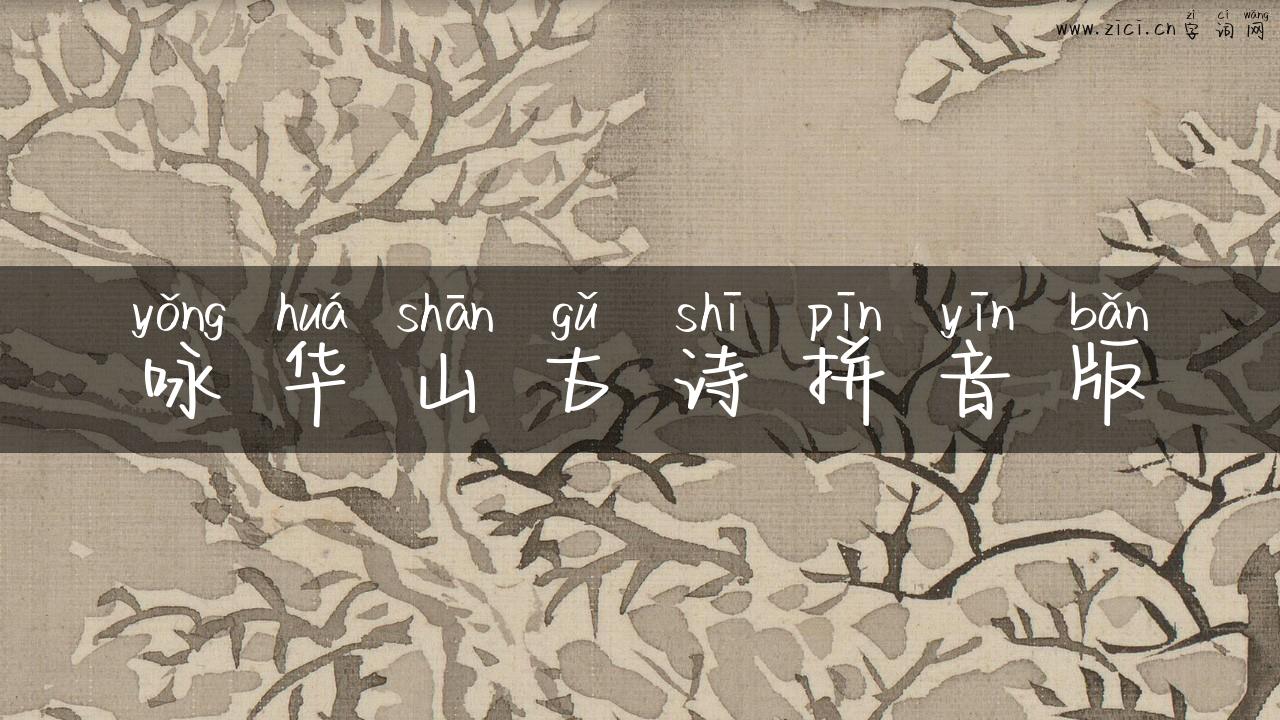 zì cí wǎng
www.zici.cn字词网
yǒng huá shān gǔ shī pīn yīn bǎn
咏华山古诗拼音版